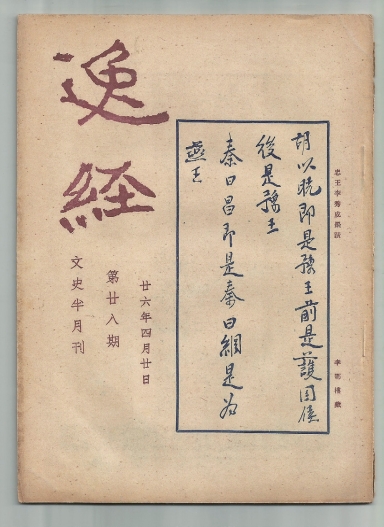 逸經
文史半月刊
第廿八期
廿六年四月廿日
忠王李秀成親訊
胡以晄即是豫王前是護國侯
後是豫王
秦日昌即是秦日綱是為
燕王